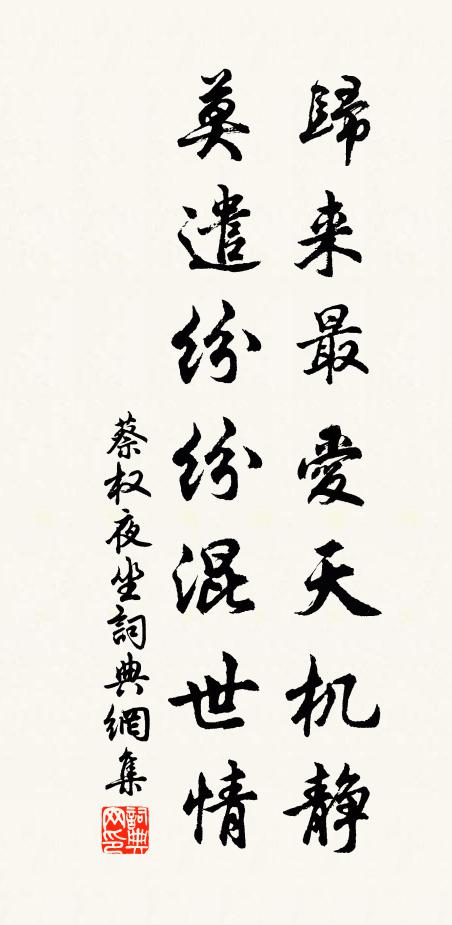 歸来最愛天机静
莫遣紛紛混世情
蔡权夜坐詞典網集
詞典网印